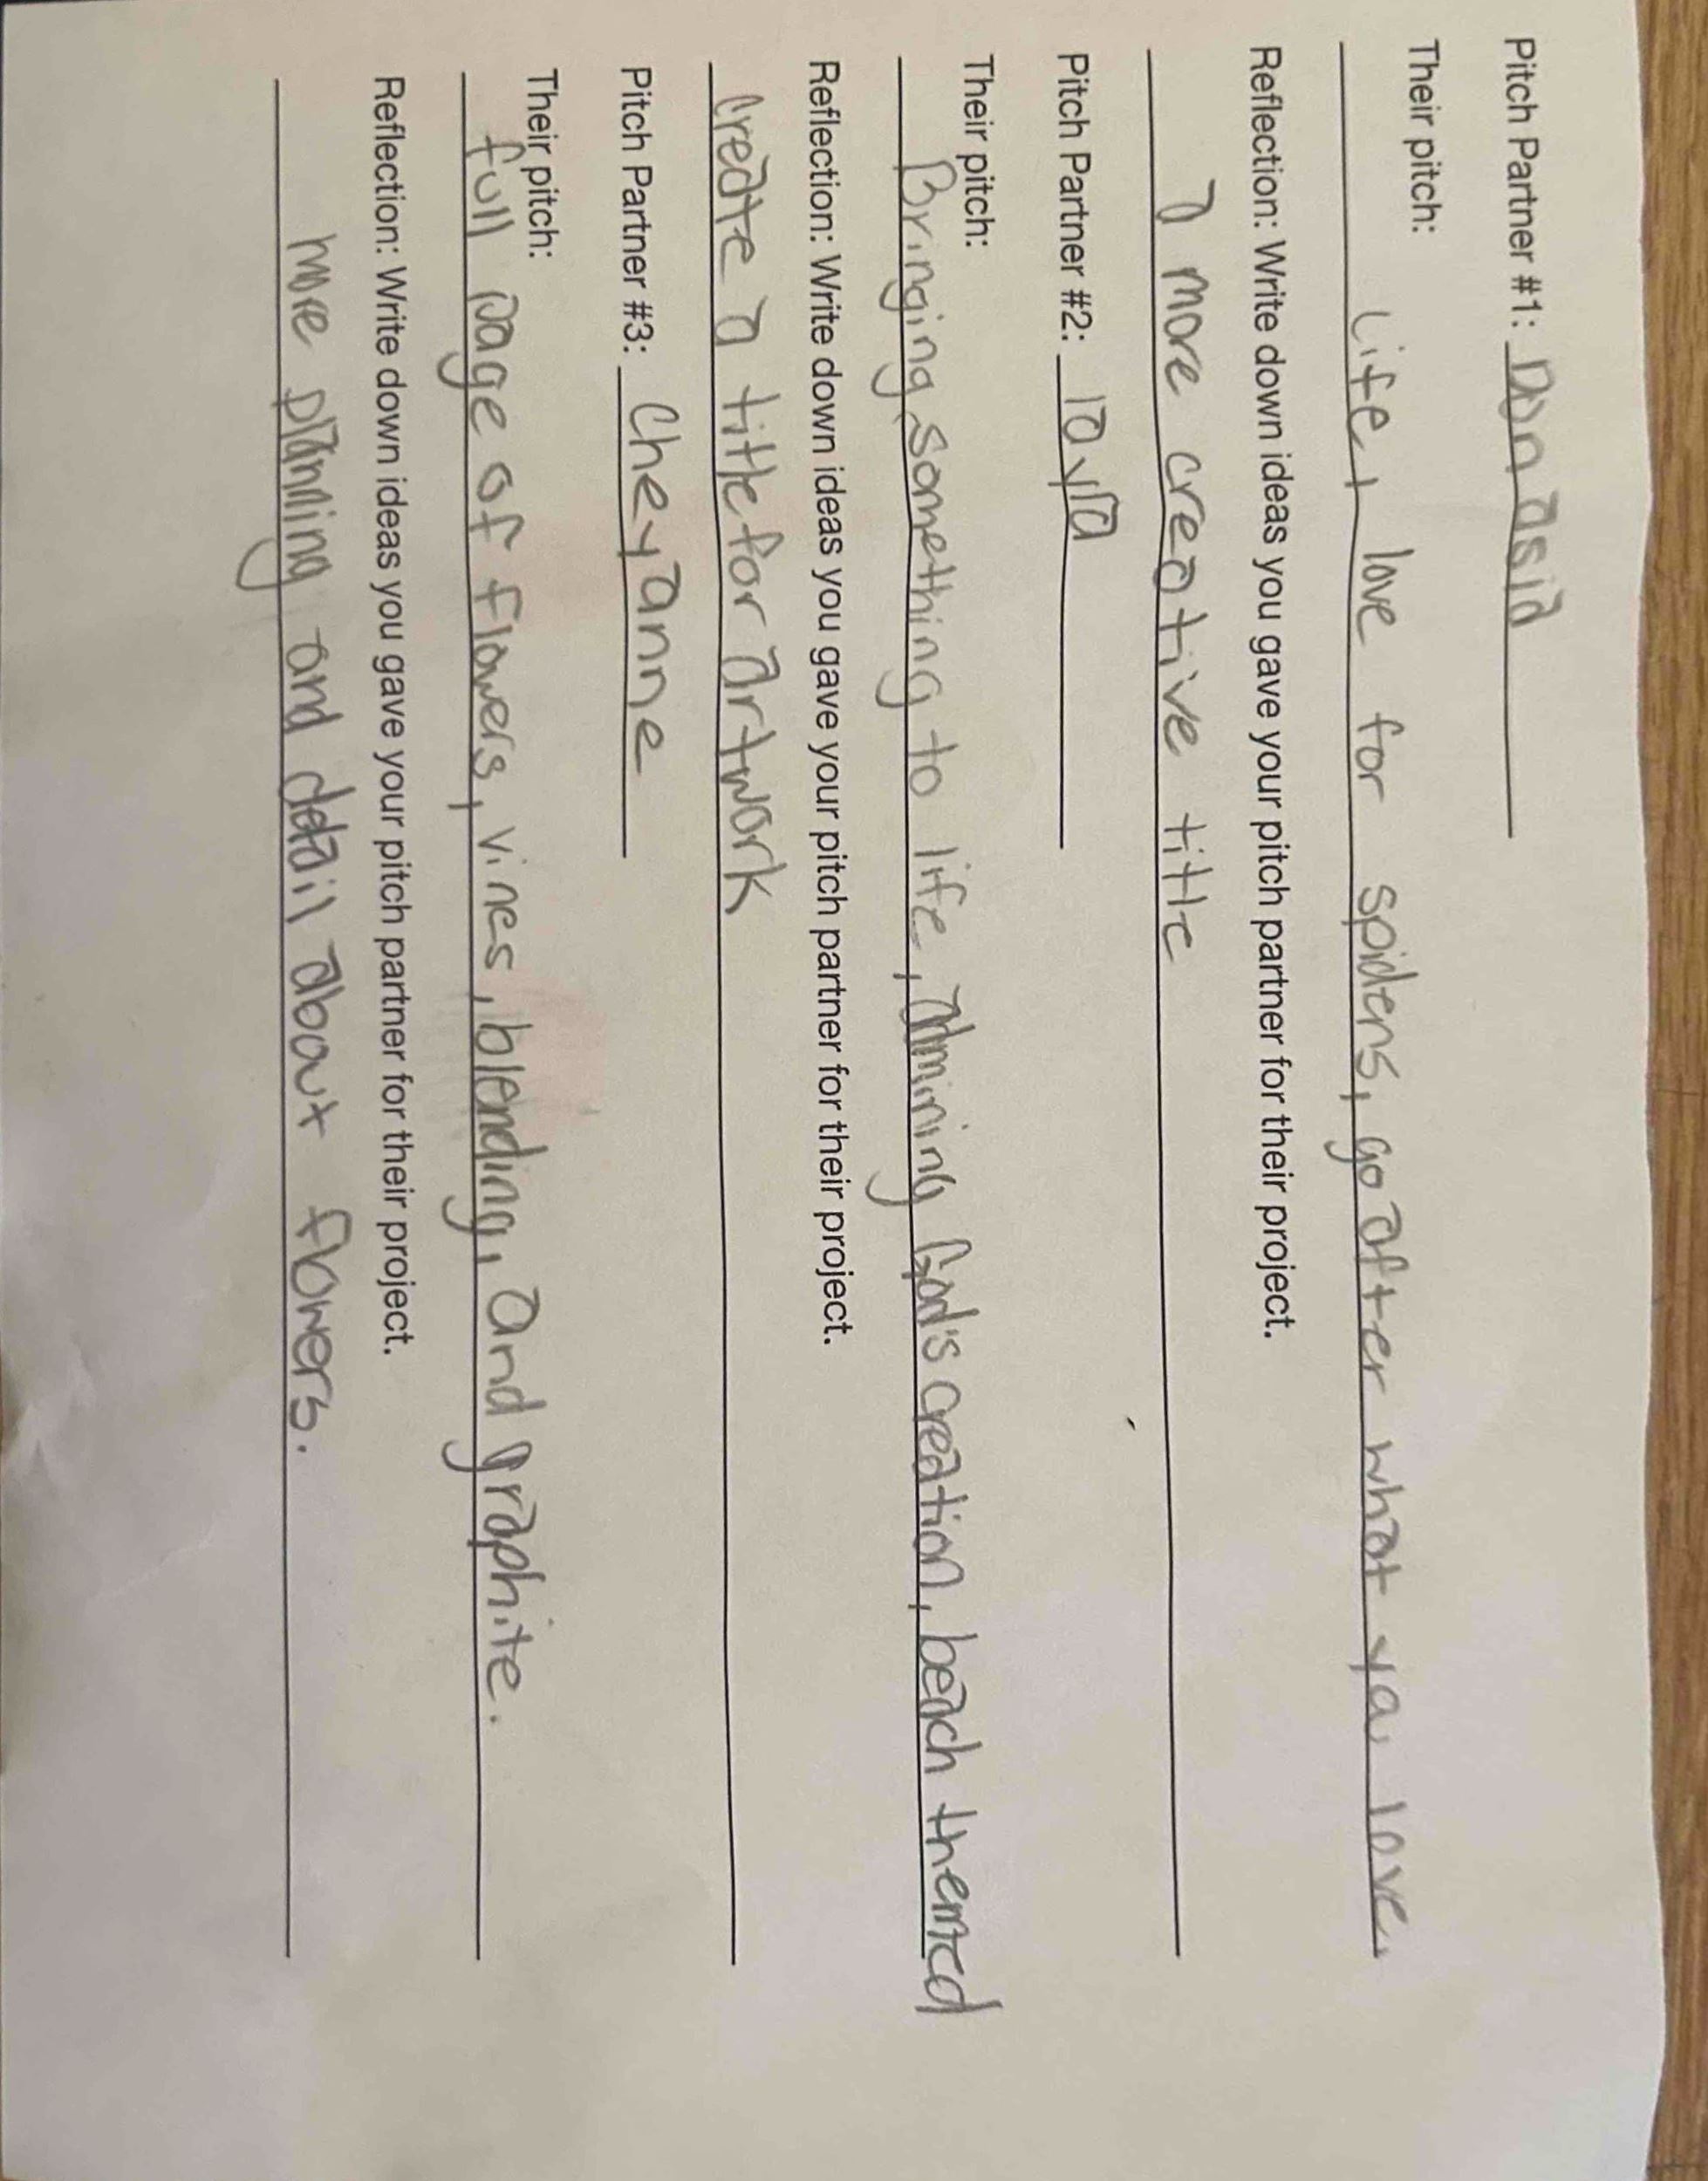 Pitch Partner #1: Donasia
Their pitch:
Life, love for spiders, go after what you love.
Reflection: Write down ideas you gave your pitch partner for their project.
a more creative title
Pitch Partner #2: layla
Their pitch:
Bringing something to life, admiring God's creation, beach themed
Reflection: Write down ideas you gave your pitch partner for their project.
create a title for artwork
Pitch Partner #3: Cheyanne
Their pitch:
full page of flowers, vines, blending, and graphite.
Reflection: Write down ideas you gave your pitch partner for their project.
more planning and detail about flowers.